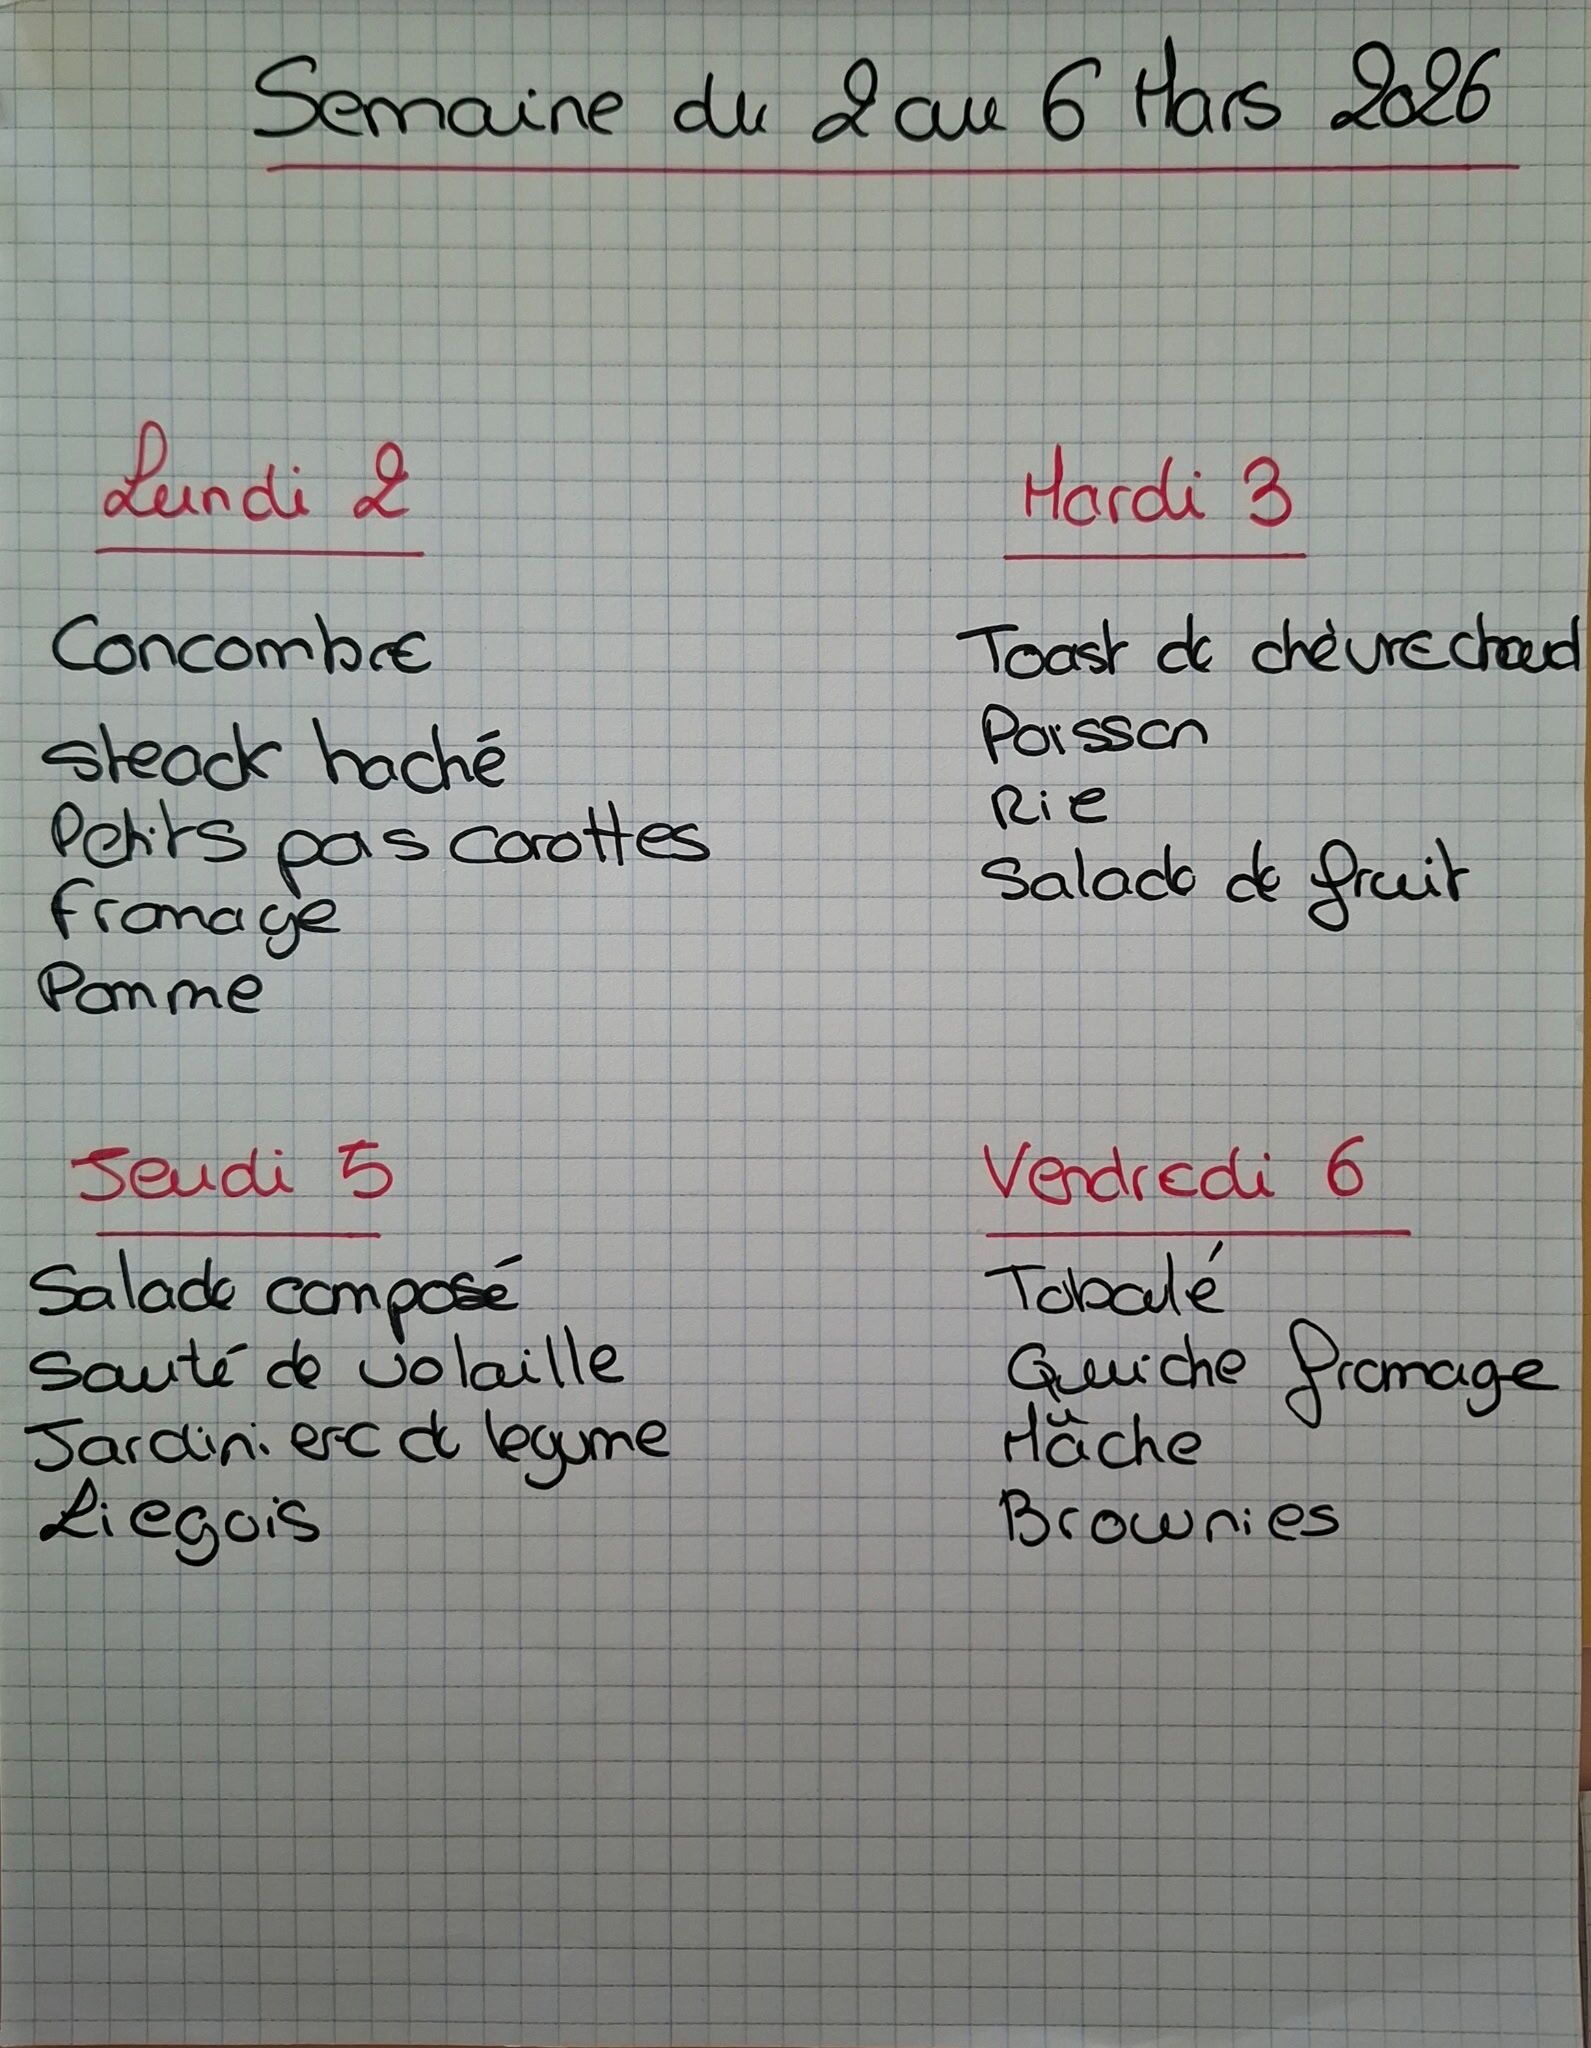 Semaine du 2 au 6 Mars 2026
Lundi 2
Concombre
steack haché
Petits pas carottes
fromage
Pomme
Mardi 3
Toast de chèvre chaud
Poisson
Rie
Salade de fruit
Jeudi 5
Salade composé
Sauté de volaille
Jardiniere de legume
Liegois
Vendredi 6
Taboulé
Quiche fromage
Mâche
Brownies